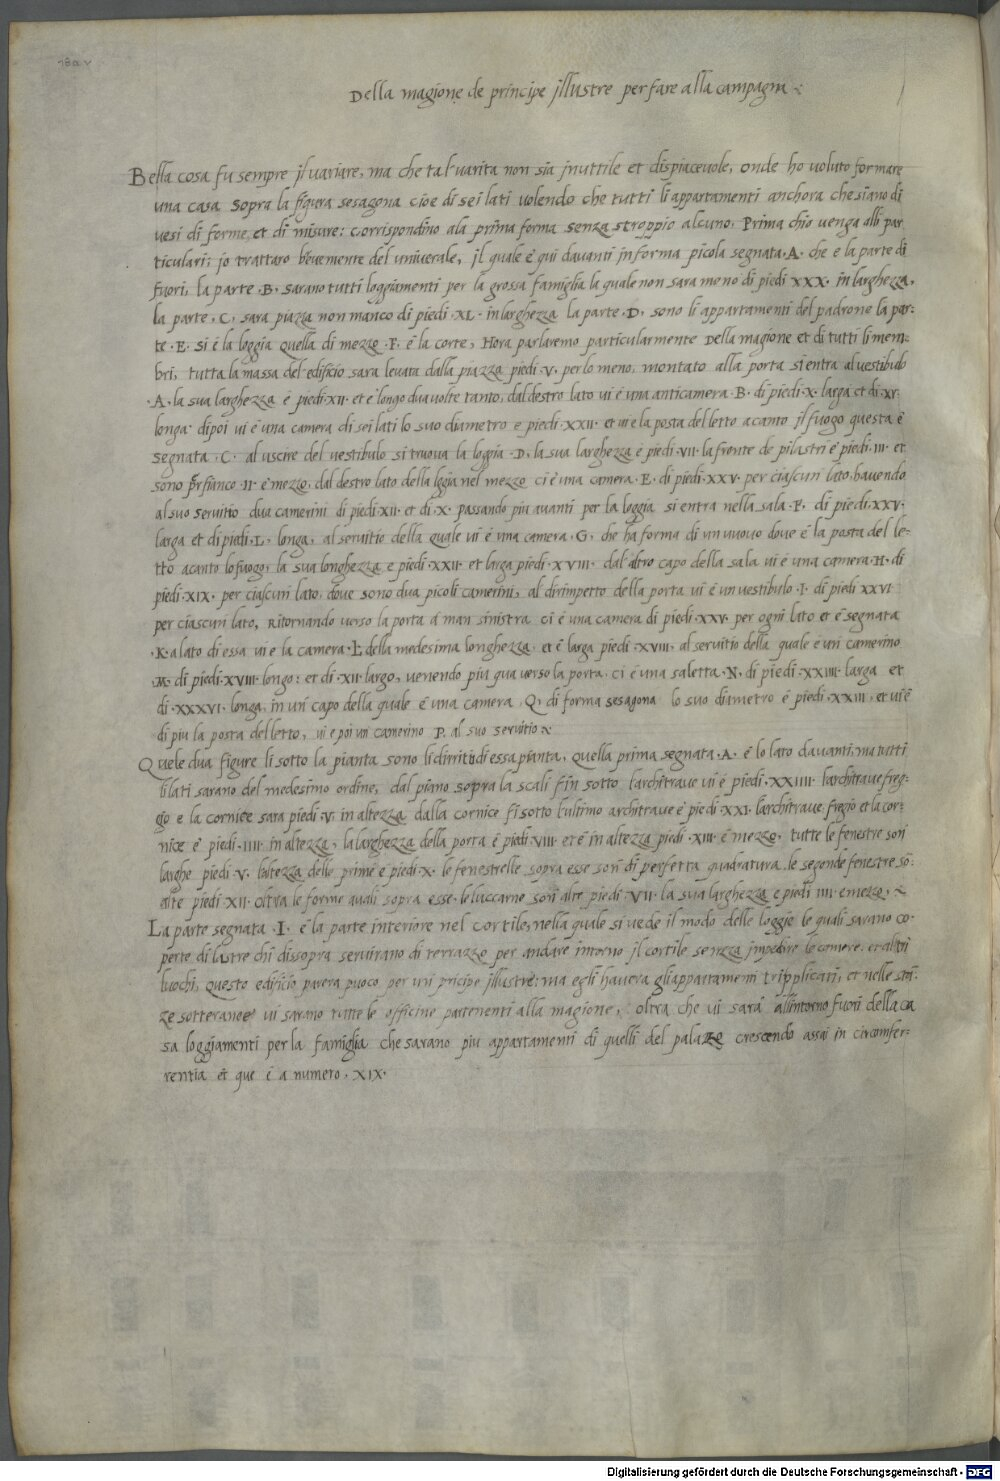 18a v
Della magione de principe jllustre per fare alla campagna
Bella cosa fu sempre jl variare, ma che tal varita non sia jnuttile et dispiacevole, onde ho voluto formare
una casa sopra la figura sesagona cioe di sei lati volendo che tutti li appartamenti anchora che siano di
versi di forme et di misure: corrispondino ala prima forma senza stroppio alcuno. Prima chio venga alli par
ticulari: jo trattaro brevemente del univerale, jl quale e qui davanti in forma picola segnata .A. che e la parte di
fuori, la parte .B. sarano tutti loggiamenti per la grossa famiglia la quale non sara meno di piedi XXX. in larghezza,
la parte .C. sara piazza non manco di piedi .XL. in larghezza la parte .D. sono li appartamenti del padrone la par-
te .E. si è la loggia quella di mezzo .F. è la corte, Hora parlaremo particularmente della magione et di tutti li mem-
bri, tutta la massa del edificio sara levata dalla piazza piedi .V. per lo meno, montato alla porta si entra al vestibulo
.A. la sua larghezza è piedi .XII. et è longo dua volte tanto, dal destro lato vi è una anticamera .B. di piedi .X. larga et di .XV.
longa: dipoi vi è una camera di sei lati lo suo diametro e piedi .XXII. et ivi e la posta del letto acanto jl fuogo questa è
segnata .C. al uscire del vestibulo si truova la loggia .D. la sua larghezza è piedi .VII. la fronte de pilastri è piedi .III. et
sono per fianco .II. e mezzo, dal destro lato della loggia nel mezzo ci è una camera .E. di piedi .XXV. per ciascun lato, havendo
al suo servitio dua camerini di piedi XII. et di .X. passando piu avanti per la loggia si entra nella sala .F. di piedi .XXV.
larga et di piedi .L. longa, al servitio della quale vi è una camera .G. che ha forma di un uuovo dove è la posta del le-
tto acanto lo fuogo, la sua longhezza e piedi .XXII. et larga piedi .XVIII. dal altro capo della sala vi è una camera .H. di
piedi .XIX. per ciascun lato, dove sono dua picoli camerini, al dirimpetto della porta vi è un vestibulo .I. di piedi XXVI
per ciascun lato, Ritornando verso la porta a man sinistra ci è una camera di piedi .XXV. per ogni lato et è segnata
.K. a lato di essa vi e la camera .L. della medesima longhezza et è larga piedi .XVIII. al servitio della quale e un camerino
.M. di piedi .XVIII. longo: et di .XII. largo, venendo piu qua verso la porta, ci è una saletta .N. di piedi .XXIIII. larga et
di .XXXVI. longa, in un capo della quale è una camera .Q. di forma sesagona lo suo diametro è piedi .XXIII. et vi è
di piu la posta del letto, vi e poi un camerino .P. al suo servitio
Quele dua figure li sotto la pianta sono li diritti di essa pianta, quella prima segnata .A. è lo lato davanti, ma tutti
li lati sarano del medesimo ordine, dal piano sopra la scali fin sotto larchitrave vi è piedi .XXIIII. larchitrave freg-
gio e la cornice sara piedi .V. in altezza dalla cornice fi sotto lultimo architrave è piedi .XXI. larchitrave fregio et la cor-
nice è piedi .IIII. in altezza, la larghezza della porta è piedi .VIII. et è in altezza piedi .XIII. è mezzo, tutte le fenestre son
larghe piedi .V. laltezza delle prime è piedi .X. le fenestrelle sopra esse son di perfetta quadratura, le segonde fenestre so-
alte piedi XII. oltra le forme avali sopra esse. le luccarne son alte piedi .VII. la sua larghezza e piedi .IIII. e mezzo,
La parte segnata .I. è la parte interiore nel cortile, nella quale si vede il modo delle loggie le quali sarano co-
perte di lastre chi dissopra servirano di terrazzo per andare intorno il cortile senzza impedire le camere, et altri
luochi, questo edificio parera puoco per un pricipe jllustre: ma egli havera gli appartamenti tripplicati, et nelle stan-
ze sotteranee vi sarano tutte le officine partenenti alla magione, oltra che vi sara allintorno fuori della ca
sa loggiamenti per la famiglia che sarano piu appartamenti di quelli del palazo crescendo assai in circomfer-
rentia et que è a numero .XIX.
Digitalisierung gefördert durch die Deutsche Forschungsgemeinschaft - DFG